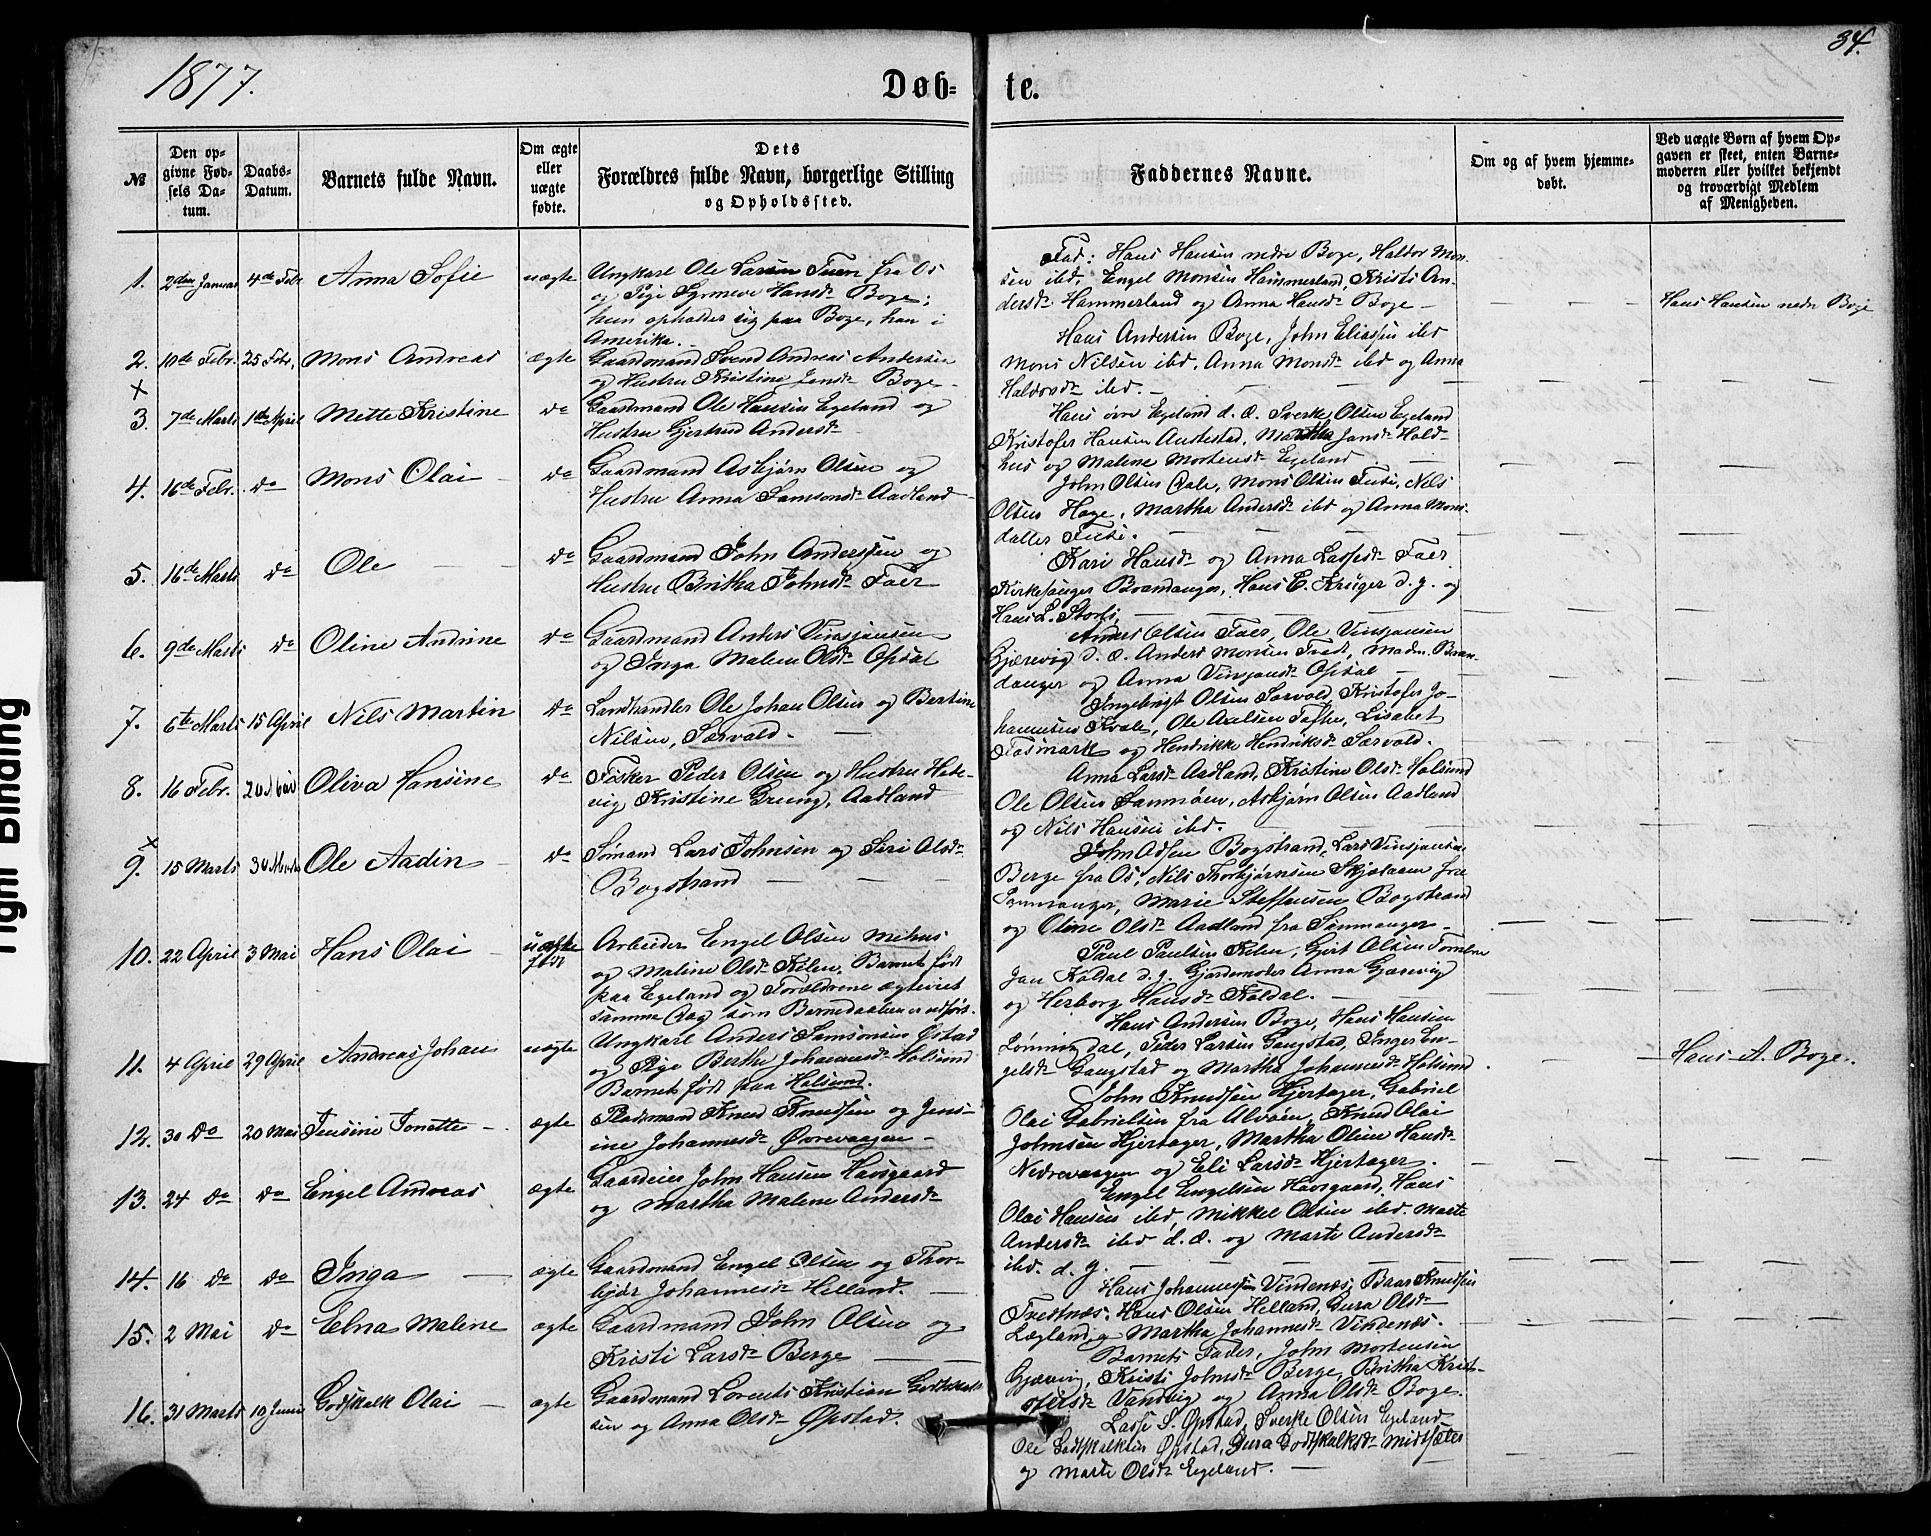 34.
1877.
Døb-
te.
№
Den op-
givne Fød-
sels Da-
tum.
Daabs-
Datum.
Barnets fulde Navn.
Om ægte
eller
uægte
fødte.
Dets
Forældres fulde Navn, borgerlige Stilling
og Opholdssted.
Faddernes Navne.
Om og af hvem hjemme-
døbt.
Ved uægte Børn af hvem Op-
gaven er skeet, enten Barne-
moderen eller hvilket bekjendt
og troværdigt Medlem
af Menigheden.
1. 2den Januar 4de Febr Anna Sofie uægte
Ungkarl Ole Larsen Tuen fra Os
og Pige Synneve Hansdr Boge;
hun opholder sig paa Boge, han i
Amerika.
Fad: Hans Hansen nedre Boge, Haldor Mon-
sen ibd, Engel Monsen Hammerland, Kristi An-
dersdr Hammerland og Anna Hansdr Boge —
Hans Hansen nedre Boge
2. 10de Febr. 25 Febr. Mons Andreas ægte
Gaardmand Svend Andreas Andersen
og Hustru Kristine Jensdr Boge
Hans Andersen Boge, John Eliassen ibd
Mons Nilsen ibd, Anna Monsdr ibd og Anna
Haldorsdr ibd. —
×
3. 7de Marts 1ste April Mette Kristine do
Gaardmand Ole Hansen Egeland og
Hustru Gjertrud Andersdr
Hans øvre Egeland d. æ. Sverke Olsen Egeland
Kristofer Hansen Austestad, Martha Jansdr Hald-
hus og Malene Mortensdr Egeland
4. 16de Febr. do Mons Olai do
Gaardmand Asbjørn Olsen og
Hustru Anna Samsonsdr Aadland
John Olsen Dale, Mons Olsen Fuse, Nils
Olsen Hage, Martha Andersdr ibd og Anna Mons-
datter Fuse.
5. 16de Marts do Ole do
Gaardmand John Anderssen og
Hustru Britha Johnsdr Faer
Kari Hansdr og Anna Lassesdr Faer
Kirkesanger Brandanger, Hans E. Krüger d. y. og
Hans L. Storli,
6. 9de Marts do Oline Andrine do
Gaardmand Anders Vinsjansen
og Inga Malene Olsdr Opsal
Anders Olsen Faer, Ole Vinsjansen
Gjærevig d. æ. Anders Monsen Tvedt, Madm. Bran-
danger og Anna Vinsjansdr Opsal
7. 6te Marts 15 April Nils Martin do
Landhandler Ole Johan Olsen og Bertine
Nilsen, Særvold. —
Ingebrigt Olsen Særvold, Kristofer Jo-
hannesen Kvale, Ole Axelsen Tofte, Lisabet
Fosmark og Hendrikke Hendriksdr Særvold.
8. 16 Febr. 20 Mai Oliva Hansine do
Fisker Peder Olsen og Hustru Hede-
vig Kristine Grung, Aadland
Anna Larsdr Aadland, Kristine Olsdr Holsund
Ole Olsen Sammøen, Asbjørn Olsen Aadland
og Nils Hansen ibd.
×
9. 15 Marts 30 Marts Ole Aadin do
Sømand Lars Johnsen og Siri Olsdr
Bogstrand
John Olsen Bogstrand, Lars Vinsjansen
Berge fra Os, Nils Thorbjørnsen Skjølaaen fra
Sammanger, Marie Steffensen Bogstrand
og Oline Olsdr Aadland fra Sammanger
10. 22 April 3 Mai Hans Olai uægte
Arbeider Engel Olsen Mehus
og Malene Olsdr Kilen, Barnet født
paa Egeland og Forældrene ægteviet
samme Dag som Barnedaaben er udført.
Paul Paulsen Kilen, Gjert Olsen
Jan Koldal d. y. Gjordemoder Anna Gjærevig
og Herborg Hansdr Koldal.
11. 4 April 29 April Andreas Johan uægte
Ungkarl Anders Samsonsen Østad
og Pige Berthe Johannesdr Holsund
Barnet født paa Holsund.
Hans Andersen Boge, Hans Hansen
Lønningdal, Peder Larsen Gangstad, Inger En-
gelsdr Gangstad og Martha Johannesdr Holsund
Hans A. Boge.
12. 30 do 20 Mai Jensine Tonette — ægte
Pladsmand Knud Knudsen og Jens-
ine Johannesdr Øvrevaagen
John Knudsen Hjertager, Gabriel
Olai Gabrielsen fra Alvøen, Knud Olai
Johnsen Hjertager, Martha Oline Hansdr
Nedrevaagen og Eli Larsdr Hjertager.
13. 24 do do Engel Andreas ægte
Gaardeier John Hansen Havsgaard
og Martha Malene Andersdr
Engel Engelsen Havsgaard, Hans
Olai Hansen ibd, Mikkel Olsen ibd. Marte
Andersdr ibd d. æ. og Marte Andersdr
ibd. d. y.
14. 16 do do Inga — ægte
Gaardmand Engel Olsen og Thor-
bjør Johannesdr Helland.
Hans Johannessen Vindenes, Baar Knudsen
Tvedtnæs, Hans Olsen Helland, Gura Olsdr
Lægland og Martha Johannesdr Vindenæs.
15. 2 Mai do Elna Malene ægte
Gaardmand John Olsen og
Kristi Larsdr Berge
Barnets Fader, John Mortensen
Gjæving, Kristi Johnsdr Berge, Britha Krist-
ofersdr Vandvig og Anna Olsdr Boge.
16. 31 Marts 10 Juni Godskalk Olai — ægte
Gaardmand Lorents Kristian Godskalk-
sen og Anna Olsdr Øpstad.
Lasse S. Øpstad, Sverke Olsen Egeland
Ole Godskalksen Øpstad, Gura Godskalksdr Midtsæter
og Marte Olsdr Egeland.
Tight Binding